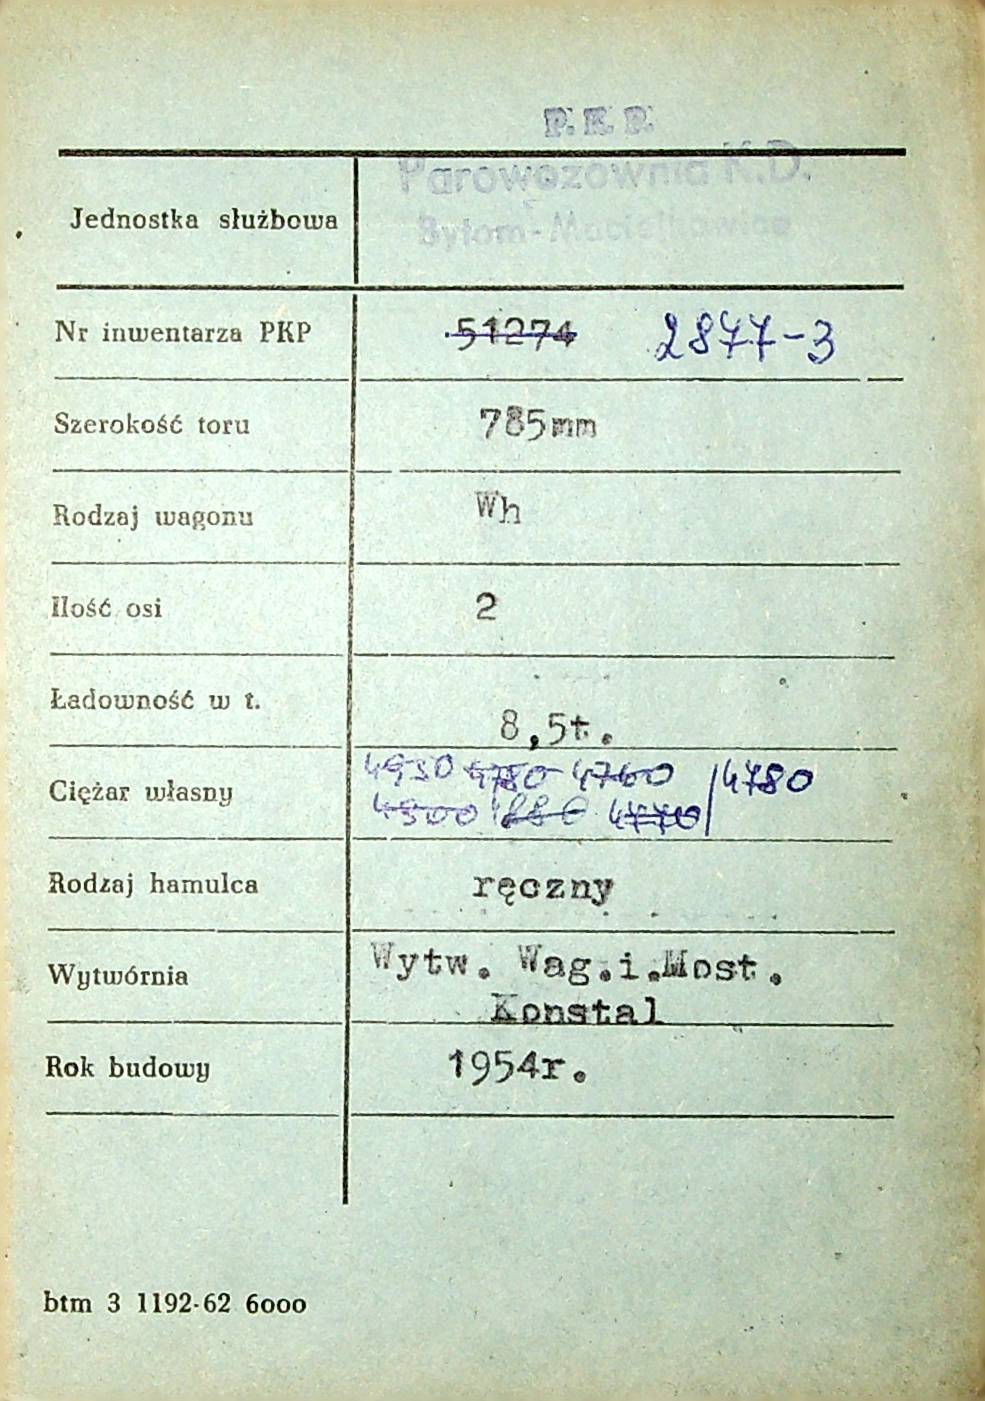 P. K. P.
Parowozownia K.D.
Bytom-Maciejkowice
Jednostka służbowa
Nr inwentarza PKP 51274 2877-3
Szerokość toru 785mm
Rodzaj wagonu Wh
Ilość osi 2
Ładowność w t. 8,5t.
4930 4780 4760 4780
Ciężar własny
4800
Rodzaj hamulca ręczny
Wytwórnia Wytw. Wag.i.Most.
Konstal
Rok budowy 1954r.
btm 3 1192-62 6000